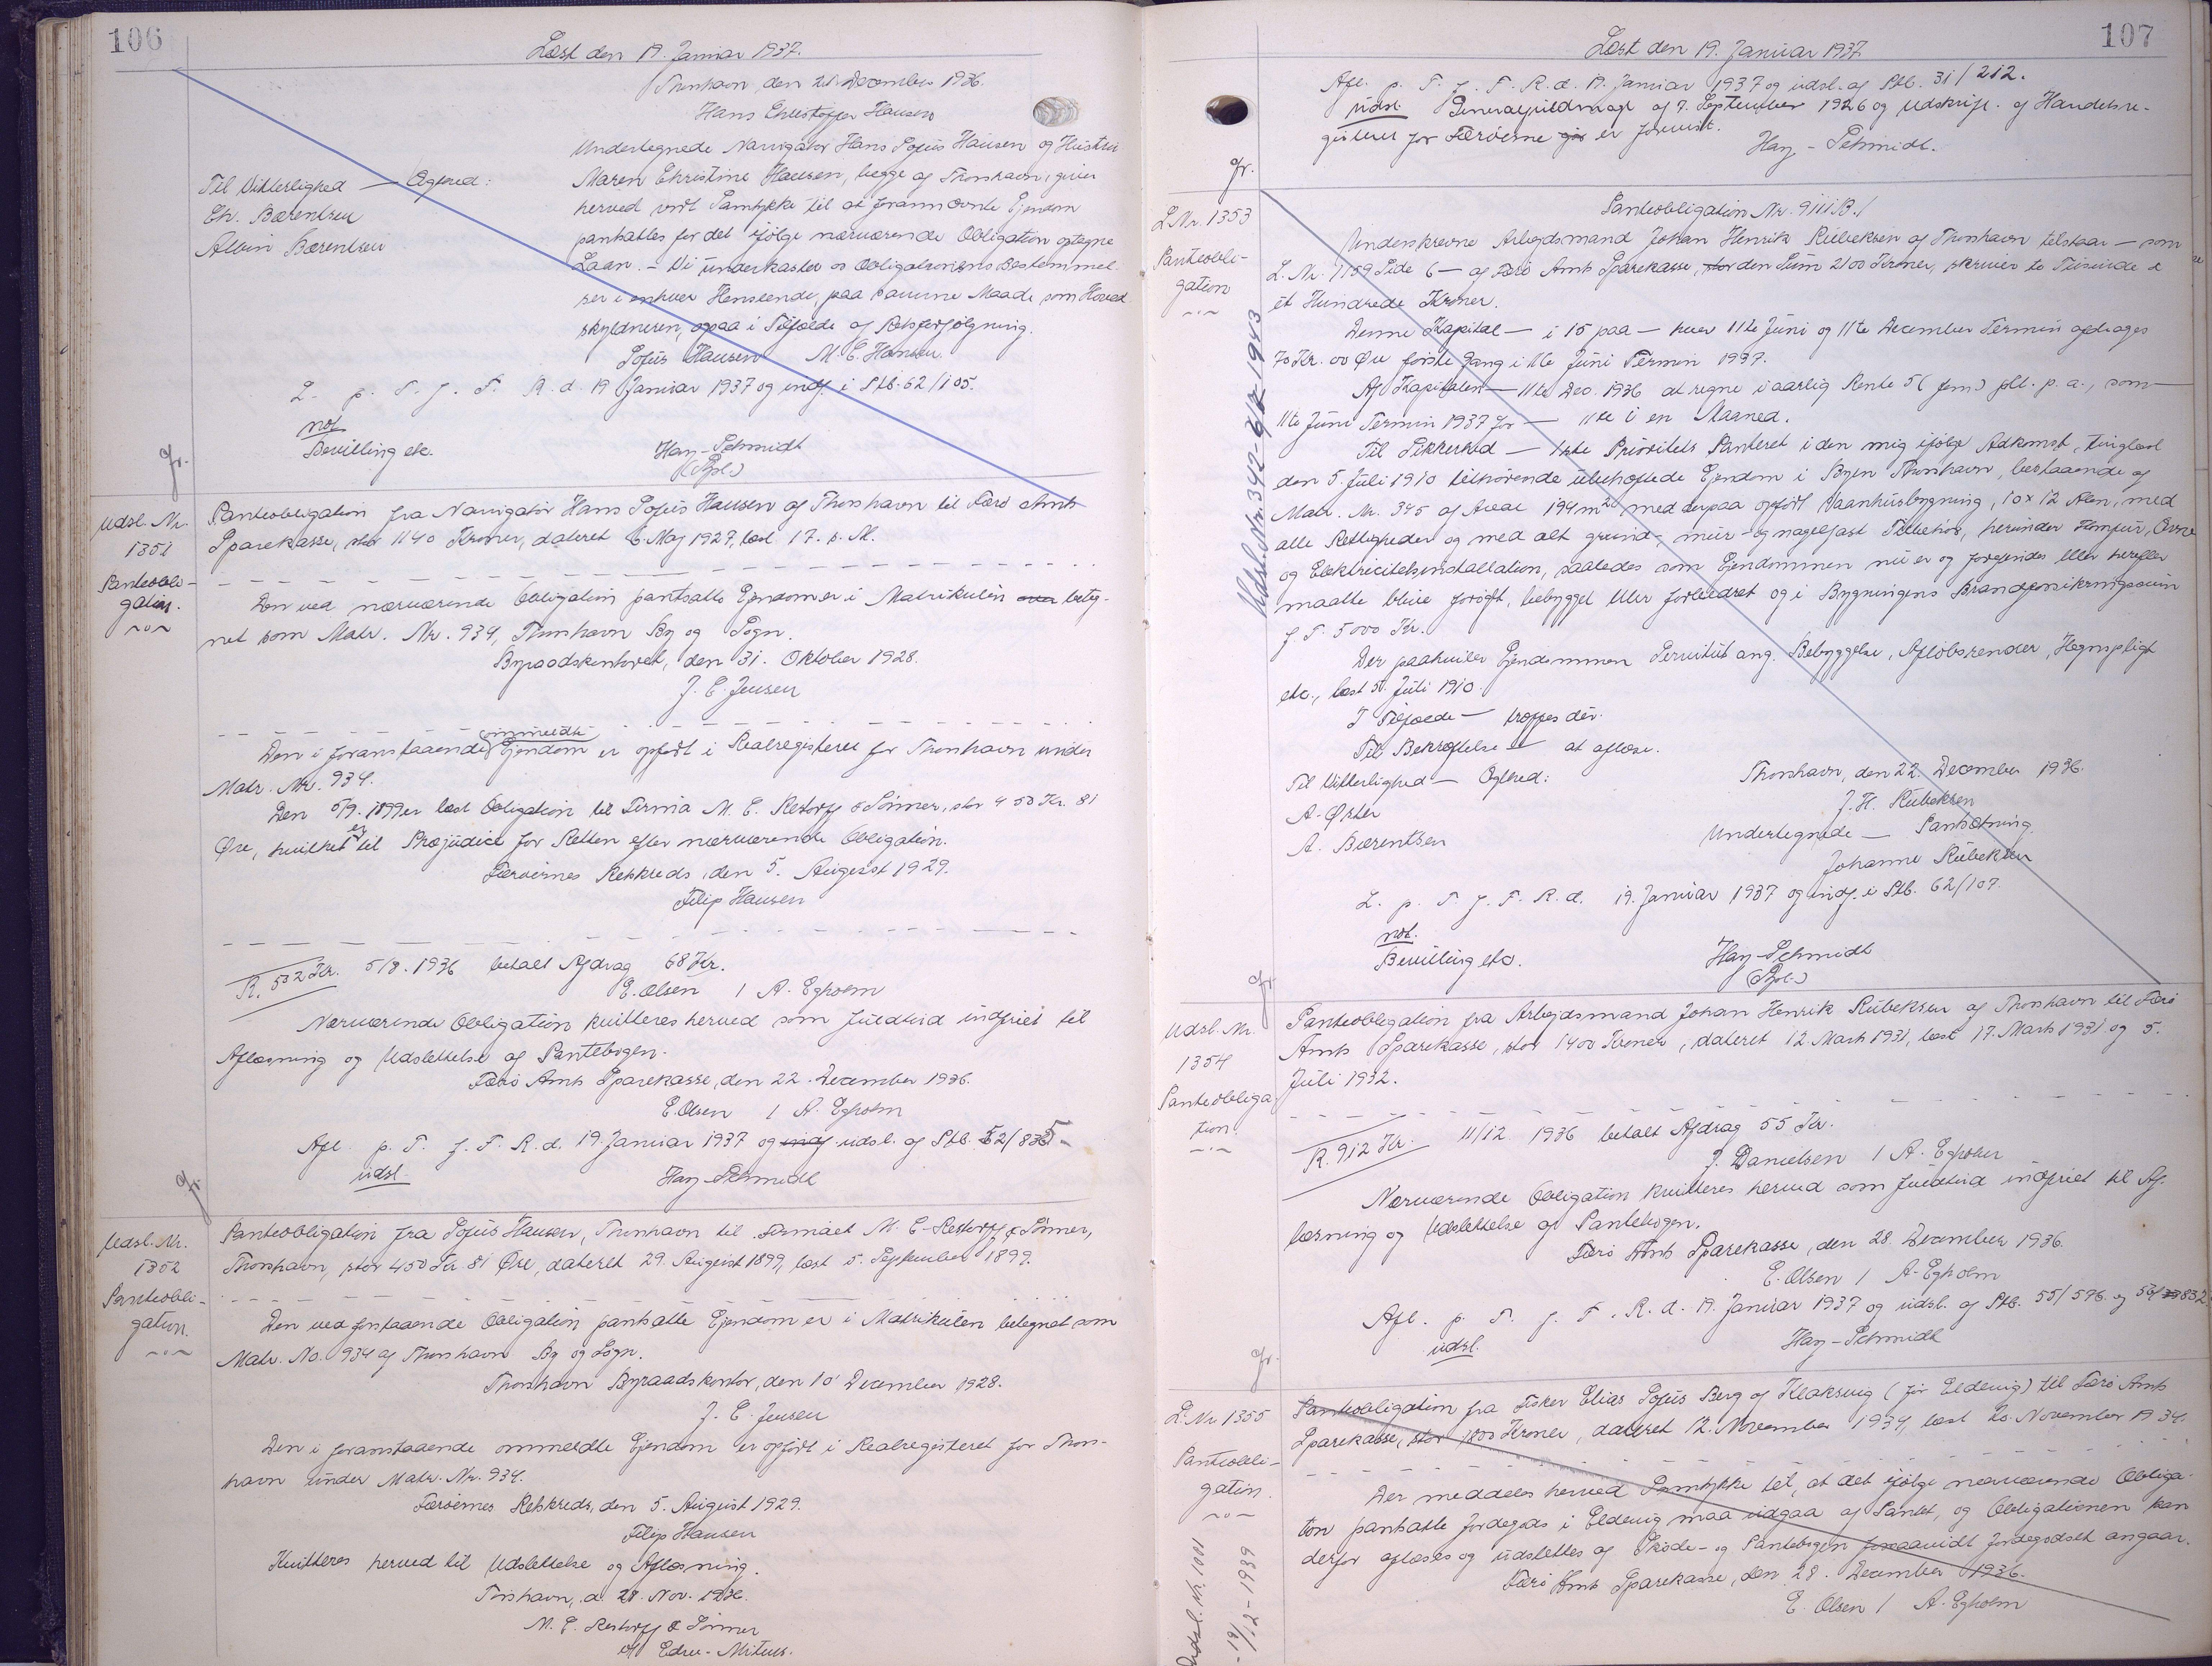 106
Læst den 19. Januar 1937.
Thorshavn, den 21. December 1936.
Hans Christoffer Hansen
Undertegnede Navigatør Hans Sofus Hansen og Hustru
Maren Christine Hansen, begge af Thorshavn, giver
herved vort Samtykke til at forannævnte Ejendom
pantsættes for det ifølge nærværende Obligation optagne
Laan. – Vi underkaster os Obligationens Bestemmel-
ser i enhver Henseende, paa samme Maade som Hoved-
skyldneren, ogsaa i Tilfælde af Retsforfølgning.
Sofus Hansen M. C. Hansen.
Til Vitterlighed — Ægthed:
Chr. Bærentsen
Alvin Bærentsen
L. p. T. f. F. R. d. 19 Januar 1937 og indf. i Skb. 62/105.
not.
Bevilling etc.
Hay-Schmidt
(Spl.)
gr.
Udsl. Nr.
1351
Panteobli-
gation.
Panteobligation fra Navigatør Hans Sofus Hansen af Thorshavn til Færø Amts
Sparekasse, stor 1140 Kroner, dateret 6. Maj 1927, læst 17. s. M.
Den ved nærværende Obligation pantsatte Ejendom er i Matrikulen beteg-
net som Matr. Nr. 934, Thorshavn By og Sogn.
Byraadskontoret, den 31. Oktober 1928.
J. C. Jensen
Den i foranstaaende ommeldte Ejendom er opført i Realregisteret for Thorshavn under
Matr. Nr. 934.
Den 5/9. 1899 er læst Obligation til Firma M. C. Restorff & Sønner, stor 450 Kr. 81
Øre, hvilket ej til Præjudice for Retten efter nærværende Obligation.
Færøernes Retskreds, den 5. August 1929.
Filip Hansen
R. 532 Kr. 5/8. 1936 betalt Afdrag 68 Kr.
E. Olsen / A. Egholm
Nærværende Obligation kvitteres herved som fuldtud indfriet til
Aflæsning og Udslettelse af Pantebogen.
Færø Amts Sparekasse, den 22. December 1936.
E. Olsen / A. Egholm
Afl. p. T. f. F. R. d. 19. Januar 1937 og indf. udsl. af Skb. 52/835
udsl.
Hay-Schmidt
gr.
Udsl. Nr.
1352
Panteobli-
gation.
Panteobligation fra Sofus Hansen, Thorshavn til Firmaet M. C. Restorff & Sønner,
Thorshavn, stor 450 Kr. 81 Øre, dateret 29. August 1899, læst 5. September 1899.
Den ved forstaaende Obligation pantsatte Ejendom er i Matrikulen betegnet som
Matr. No. 934 af Thorshavn By og Sogn.
Thorshavn Byraadskontor, den 10' December 1928.
J. C. Jensen
Den i foranstaaende ommeldte Ejendom er opført i Realregisteret for Thors-
havn under Matr. Nr. 934.
Færøernes Retskreds, den 5. August 1929.
Filip Hansen
Kvitteres herved til Udslettelse og Aflæsning.
Thorshavn, d. 28. Nov. 1936.
M. C. Restorff & Sønner
107
Læst den 19. Januar 1937.
Afl. p. T. f. F. R. d. 19. Januar 1937 og udsl. af Skb. 31/212.
udsl. Generalfuldmagt af 7. September 1926 og Udskrift af Handelsre-
gisteret for Færøerne er forevist.
Hay-Schmidt.
gr.
L. Nr. 1353
Panteobli-
gation
Udsl. Nr. 342
Panteobligation Nr. 9111B./
Underskrevne Arbejdsmand Johan Henrik Rubeksen af Thorshavn tilstaar — som
L. Nr. 1159 Side 6 — af Færø Amts Sparekasse, stor den Sum 2100 Kroner, skriver to Tusinde &
et Hundrede Kroner.
Denne Kapital — i 15 paa — hver 11te Juni og 11te December Termin afdrages
70 Kr. 00 Øre første Gang i 11te Juni Termin 1937.
Af Kapitalen — 11te Dec. 1936 at regne i aarlig Rente 5 (fem) pCt. p. a., som —
11te Juni Termin 1937 for — 11te i en Maaned.
Til Sikkerhed — 1ste Prioritets Panteret i den mig ifølge Adkomst, tinglæst
den 5. Juli 1910 tilhørende ubehæftede Ejendom i Byen Thorshavn, bestaaende af
Matr. Nr. 345 af Areal 194 m² med derpaa opført Vaanhusbygning, 10 x 12 Alen, med
alle Rettigheder og med alt grund-, mur- og nagelfast Tilbehør, herunder Komfur, Ovne
og Elektricitetsinstallation, saaledes som Ejendommen nu er og forefindes eller herefter
maatte blive forøget, bebygget eller forbedret og i Bygningens Brandforsikringssum
f. T. 5000 Kr.
Der paahviler Ejendommen Servitut ang. Bebyggelse, Afløbsrender, Hegnspligt
etc., læst 5. Juli 1910.
I Tilfælde — træffes der.
Til Bekræftelse — at aflæse.
Til Vitterlighed — Ægthed:
A. Øster
A. Bærentsen
Thorshavn, den 22. December 1936.
J. H. Rubeksen
Undertegnede — Pantsætning.
Johanne Rubeksen
L. p. T. f. F. R. d. 19. Januar 1937 og indf. i Skb. 62/107.
not.
Bevilling etc.
Hay-Schmidt
(Spl.)
gr.
Udsl. Nr.
1354
Panteobliga-
tion.
Panteobligation fra Arbejdsmand Johan Henrik Rubeksen af Thorshavn til Færø
Amts Sparekasse, stor 1400 Kroner, dateret 12. Marts 1931, læst 17. Marts 1931 og 5.
Juli 1932.
R. 912 Kr. 11/12 1936 betalt Afdrag 55 Kr.
J. Danielsen / A. Egholm
Nærværende Obligation kvitteres herved som fuldtud indfriet til Af-
læsning og Udslettelse af Pantebogen.
Færø Amts Sparekasse, den 28. December 1936.
E. Olsen / A. Egholm
Afl. p. T. f. F. R. d. 19. Januar 1937 og udsl. af Skb. 55/596 og 56/832
udsl.
Hay-Schmidt
gr.
L. Nr. 1355
Panteobli-
gation.
Udsl. Nr. 1001
19/12-1939
Panteobligation fra Fisker Elias Sofus Berg af Klaksvig (før Eldevig) til Færø Amts
Sparekasse, stor 1800 Kroner, dateret 12. November 1934, læst 20. November 1934.
Der meddeles herved Samtykke til, at det ifølge nærværende Obliga-
tion pantsatte Jordegods i Eldevig maa udgaa af Pantet, og Obligationen kan
derfor aflæses og udslettes af Skøde- og Pantebogen forsaavidt Jordegodset angaar.
Færø Amts Sparekasse, den 28. December 1936.
E. Olsen / A. Egholm